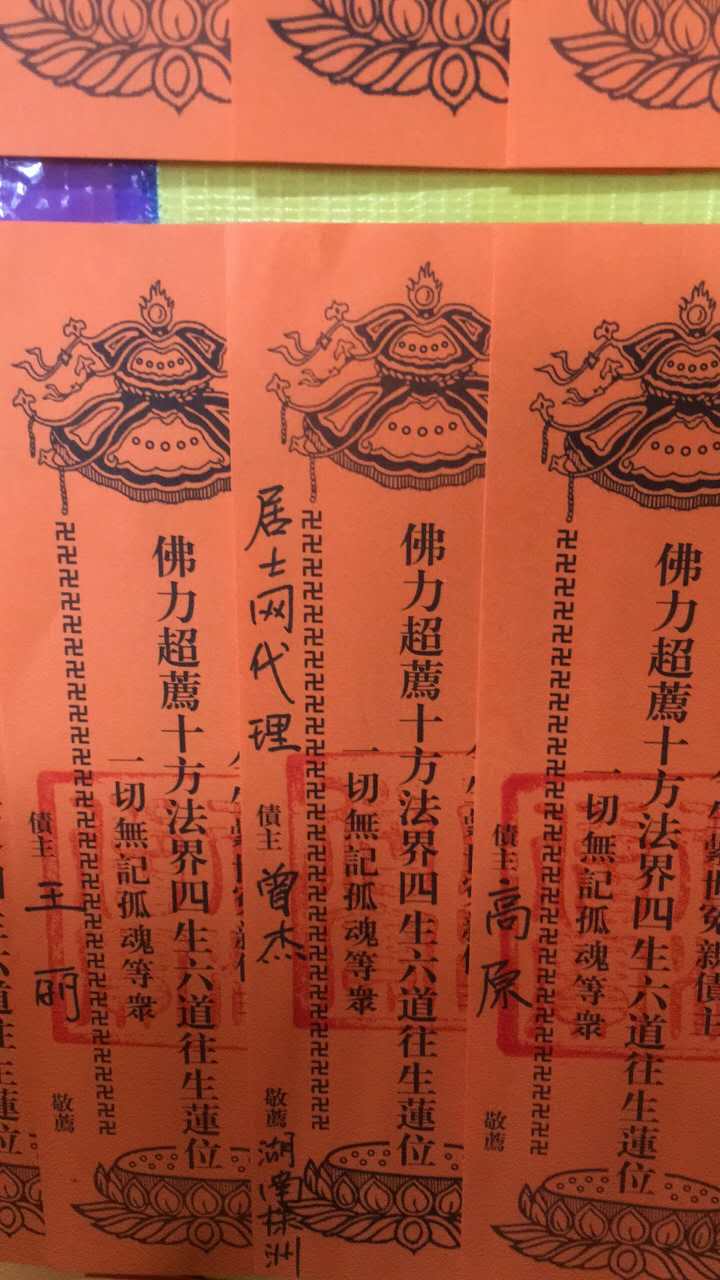 世冤親債
佛力超薦十方法界四生六道往生蓮位
一切無記孤魂等衆
債主 高原 敬薦
佛力超薦十方法界四生六道往生蓮位
一切無記孤魂等衆
居士网代理
債主 曾杰 敬薦 湖南株洲
佛力超薦十方法界四生六道往生蓮位
一切無記孤魂等衆
債主 王丽 敬薦